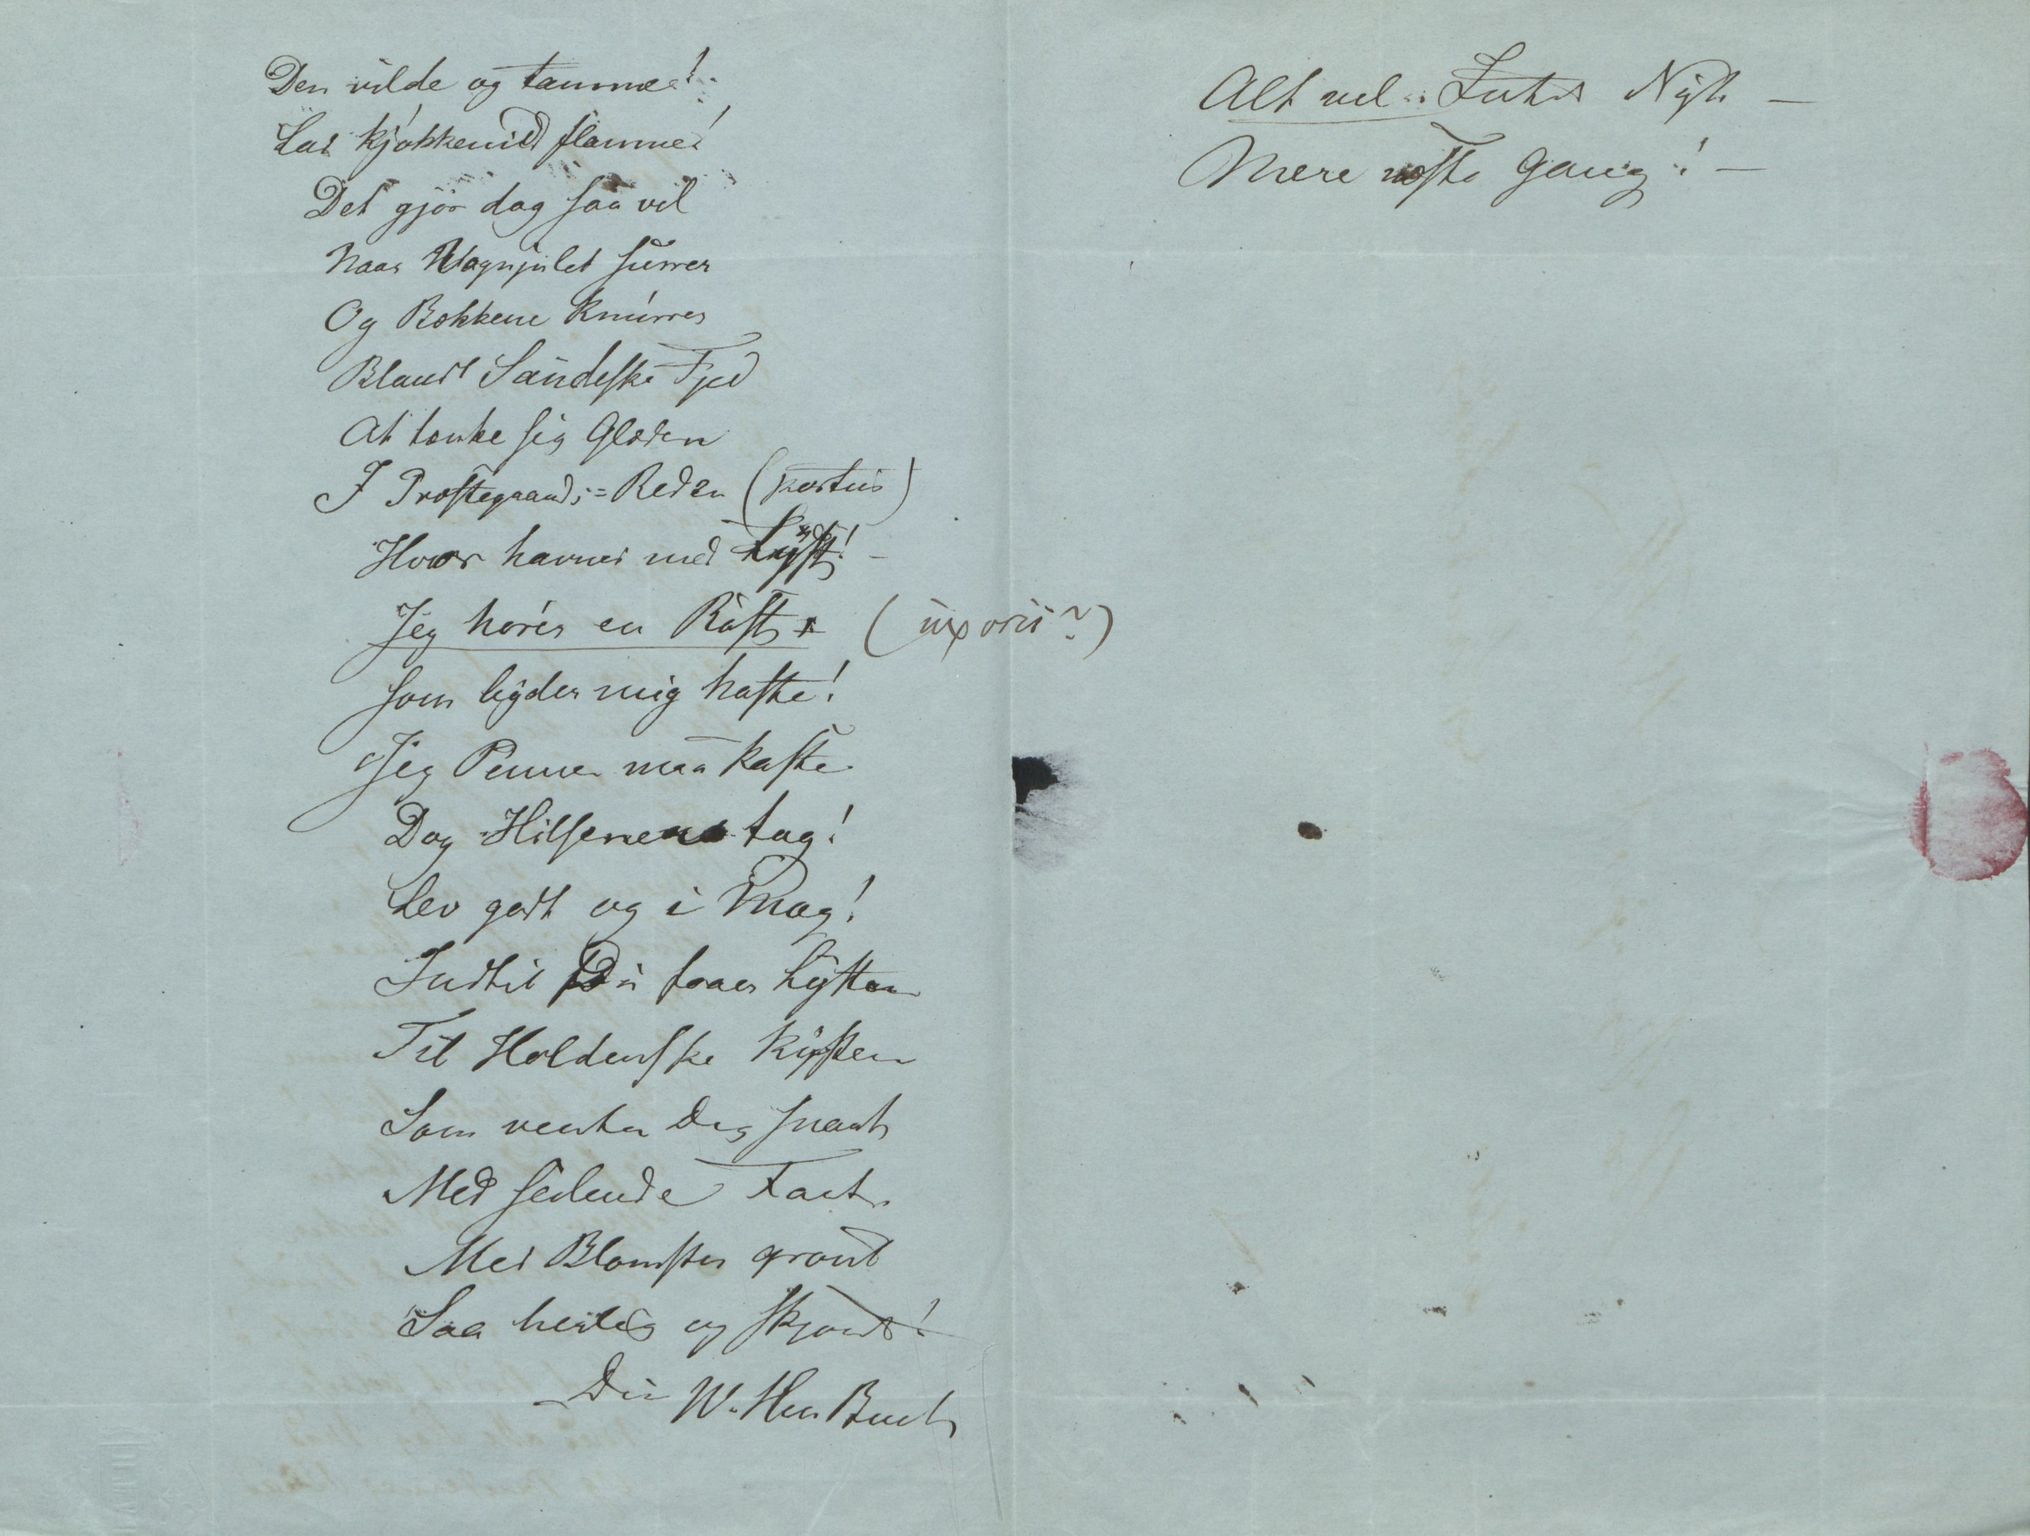 Den vilde og tamme!
Lad kjøkkenild flamme!
Det gjør dog saa vel
Naar Vognhjulet surrer
Og Bækkene knurrer
Blandt Sandeske Fjed
At tænke sig Glæden
I Præstegaards=Reden (portus)
Hvor havnes med Lyst! –
Jeg hører en Røst (uxoris?)
som byder mig haste!
Jeg Pennen maa kaste
Dog Hilsenen tag!
Lev godt og i Mag!
Indtil Du faaer Lysten
Til Holdenske Kysten
Som venter Dig snart
Med seilende Fart
Med Blomster grønt
Saa herlig og skjønt!
– Din W. Hm Buch
Alt vel. Intet Nyt –
Mere næste Gang! –